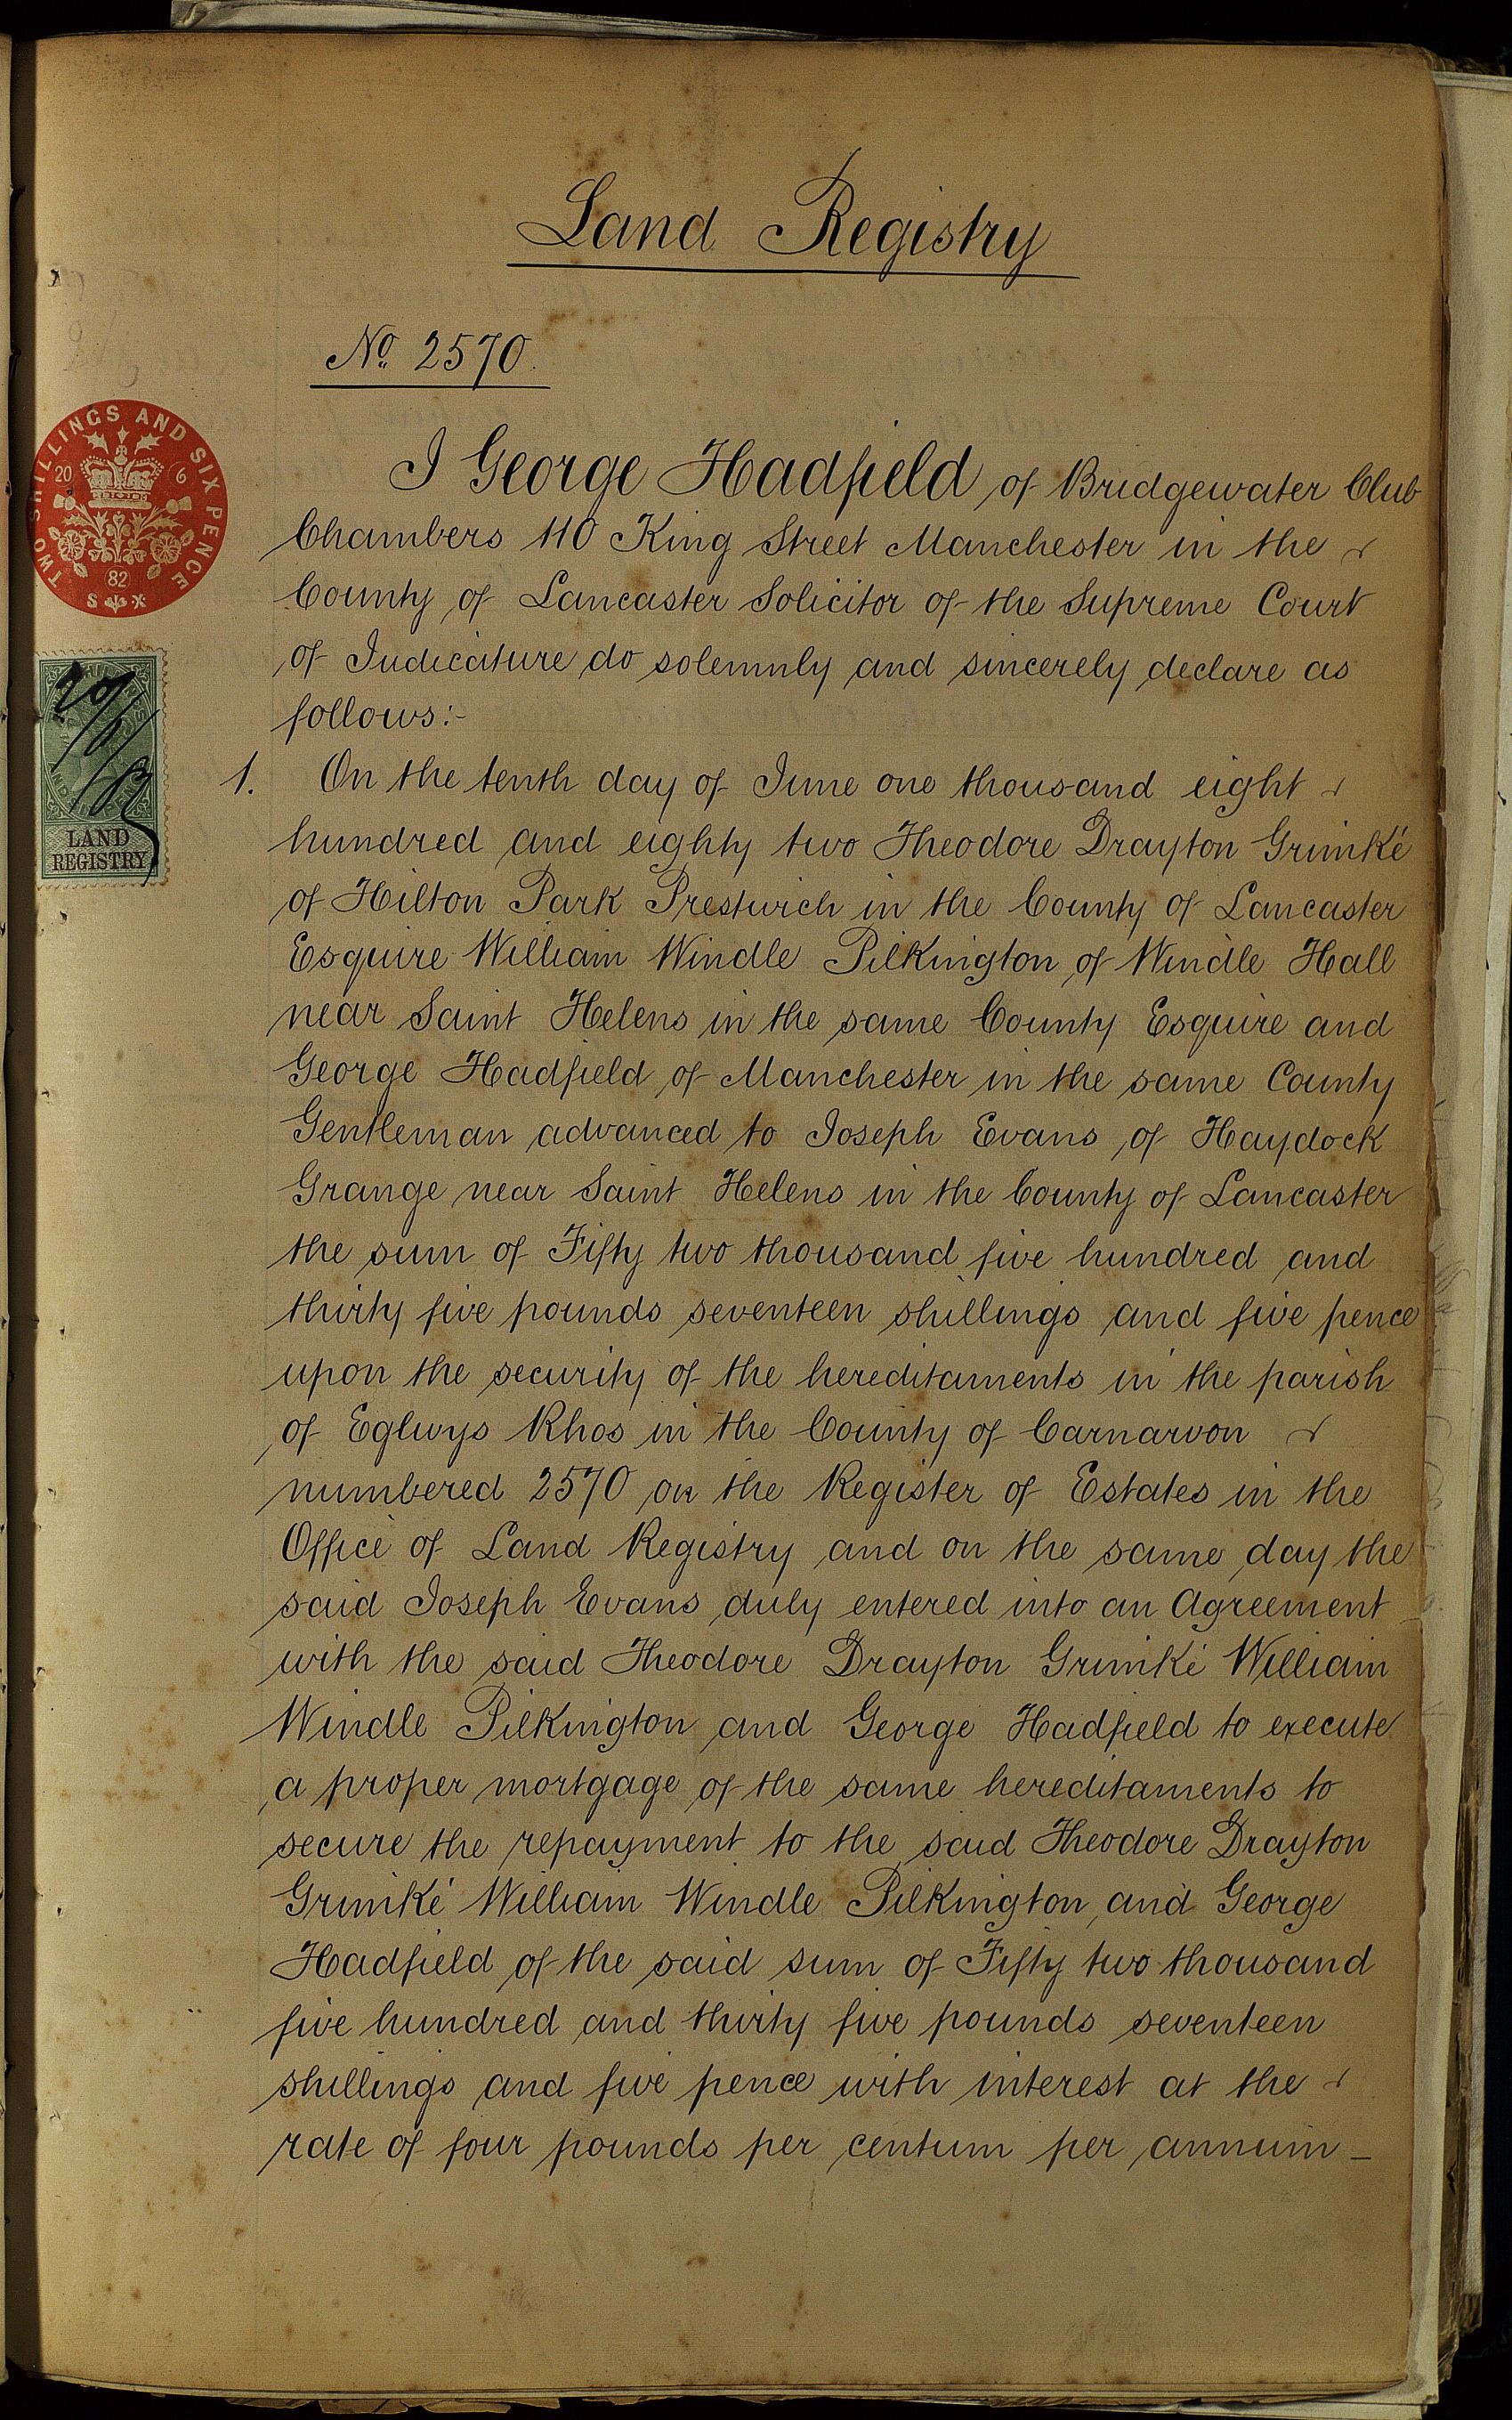 Land Registry
No. 2570.
TWO SHILLINGS AND SIX PENCE
20 6
82
S
LAND
REGISTRY
I George Hadfield of Bridgewater Club
Chambers 110 King Street Manchester in the
County of Lancaster Solicitor of the Supreme Court
of Judicature do solemnly and sincerely declare as
follows:-
1. On the tenth day of June one thousand eight
hundred and eighty two Theodore Drayton Grimké
of Hilton Park Prestwich in the County of Lancaster
Esquire William Windle Pilkington of Windle Hall
near Saint Helens in the same County Esquire and
George Hadfield of Manchester in the same County
Gentleman advanced to Joseph Evans of Haydock
Grange near Saint Helens in the County of Lancaster
the sum of Fifty two thousand five hundred and
thirty five pounds seventeen shillings and five pence
upon the security of the hereditaments in the parish
of Eglwys Rhos in the County of Carnarvon
numbered 2570 on the Register of Estates in the
Office of Land Registry and on the same day the
said Joseph Evans duly entered into an Agreement
with the said Theodore Drayton Grimké William
Windle Pilkington and George Hadfield to execute
a proper mortgage of the same hereditaments to
secure the repayment to the said Theodore Drayton
Grimké William Windle Pilkington and George
Hadfield of the said sum of Fifty two thousand
five hundred and thirty five pounds seventeen
shillings and five pence with interest at the
rate of four pounds per centum per annum _